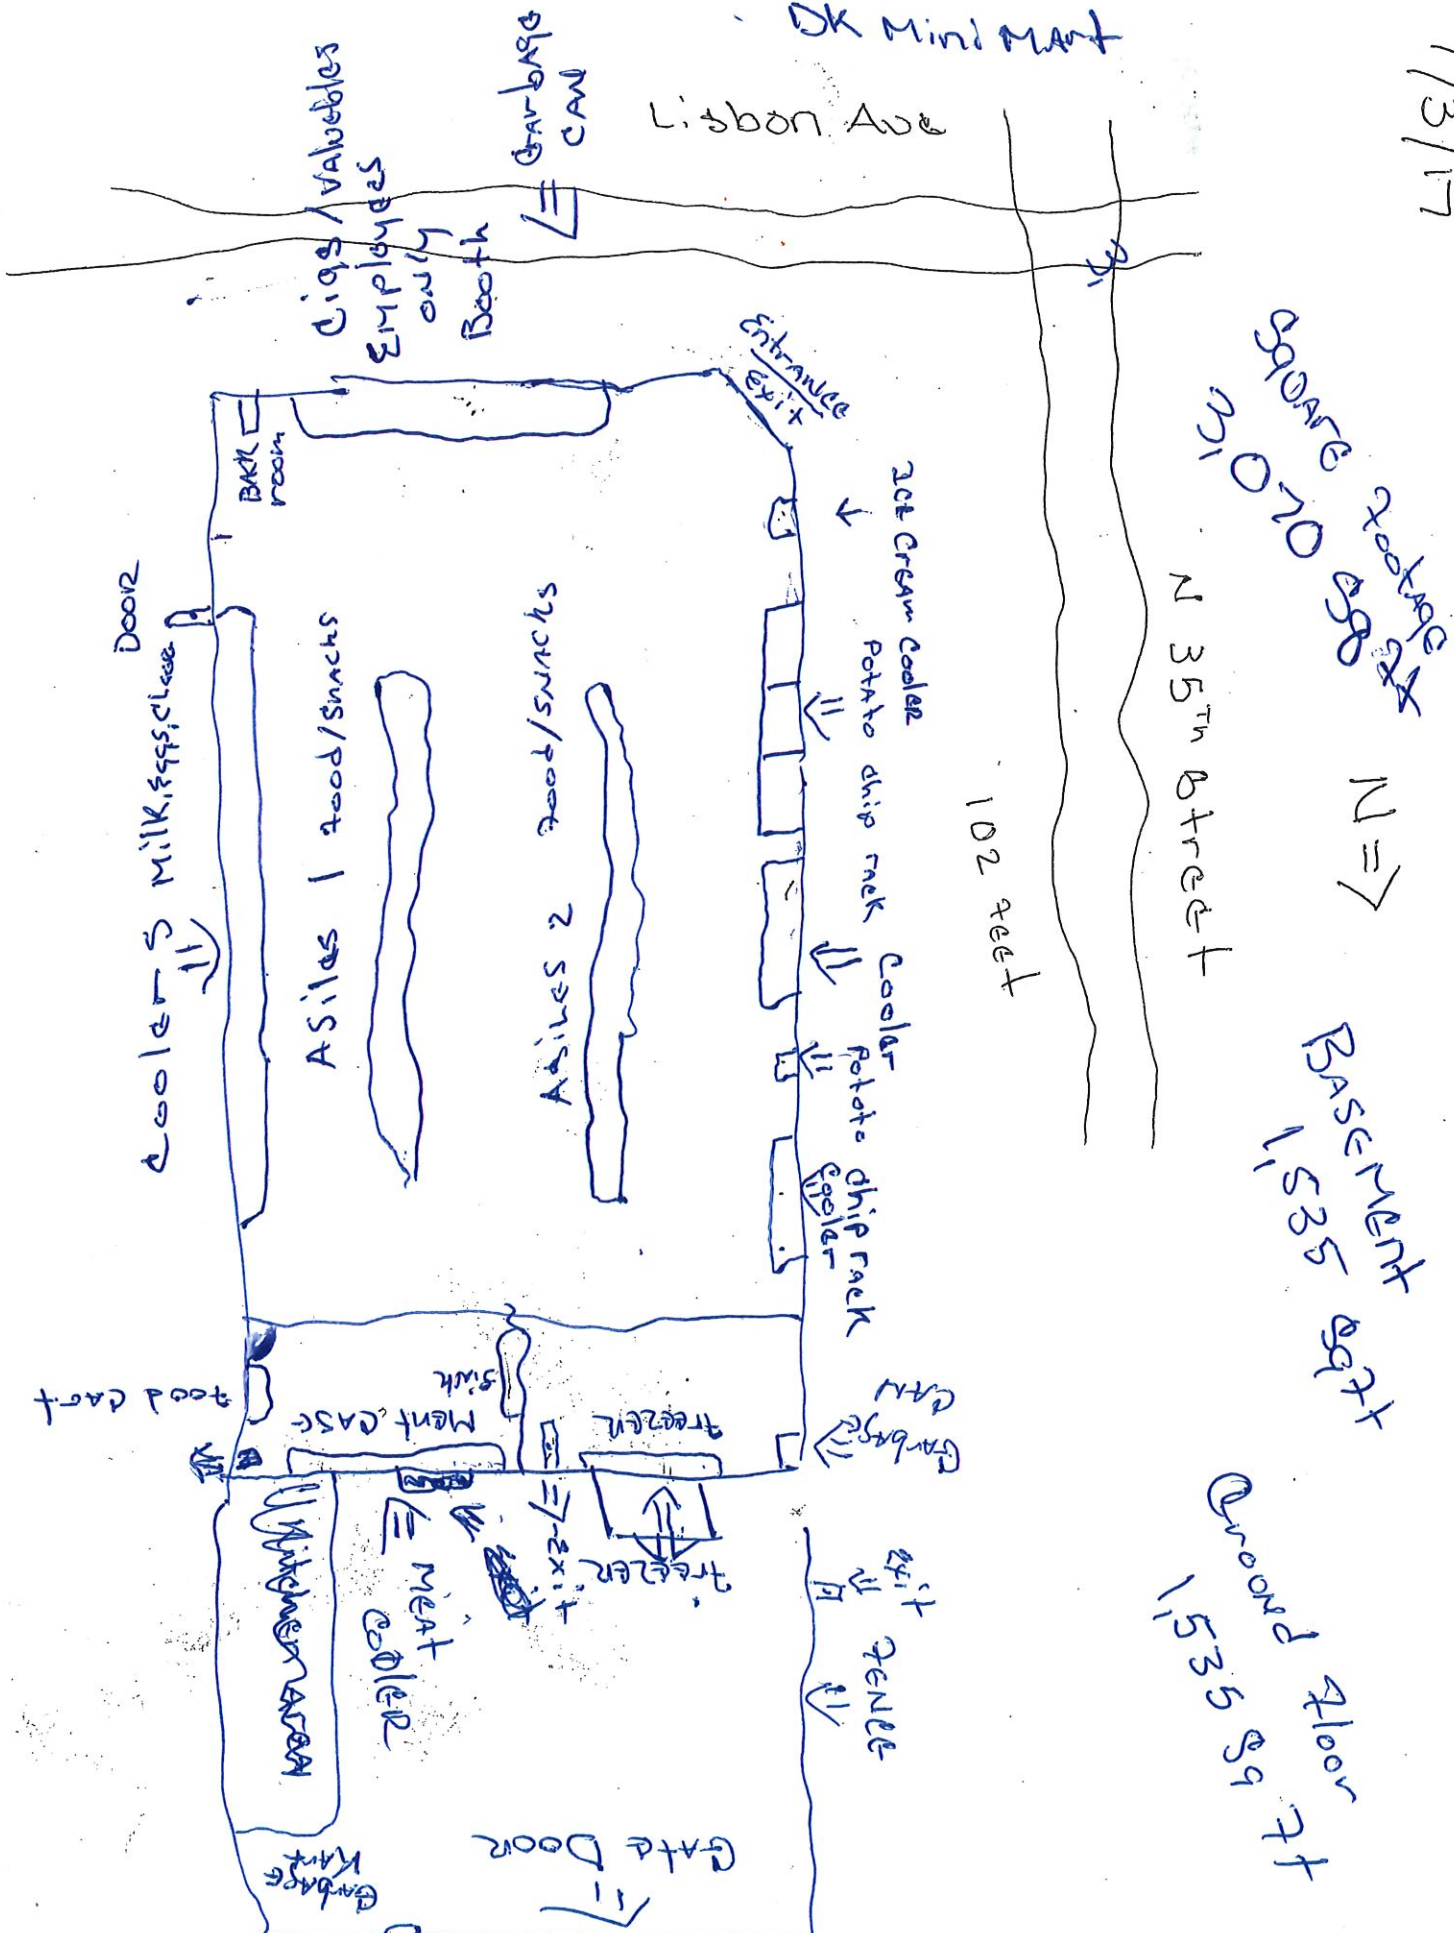 DK Mini MArt
1/3/17
Lisbon Ave
GArbAge
CAN
Cigs/Valuebles
Employees
only
Booth
Entrance
Exit
BAth
room
SquAre footage
3,070 sq ft
N =>
N 35th Street
102 feet
BASEMENt
1,535 sqft
Ground floor
1,535 sq ft
ICE CreAm Cooler
PotAto chip rack
Cooler
Potato chip rack
Cooler
DOOR
Cooler S Milk, Eggs, Chese
ASiles 1 food/SnAcks
Asiles 2 food/SNACKs
food CArt
Sink
MEAt CASE
fREEZER
GArbAge
CAN
Kitchen AreA
MEAt
COOLER
Exit
FREEZER
Exit
FENCE
GArbAge
KArt
GAte DOOR